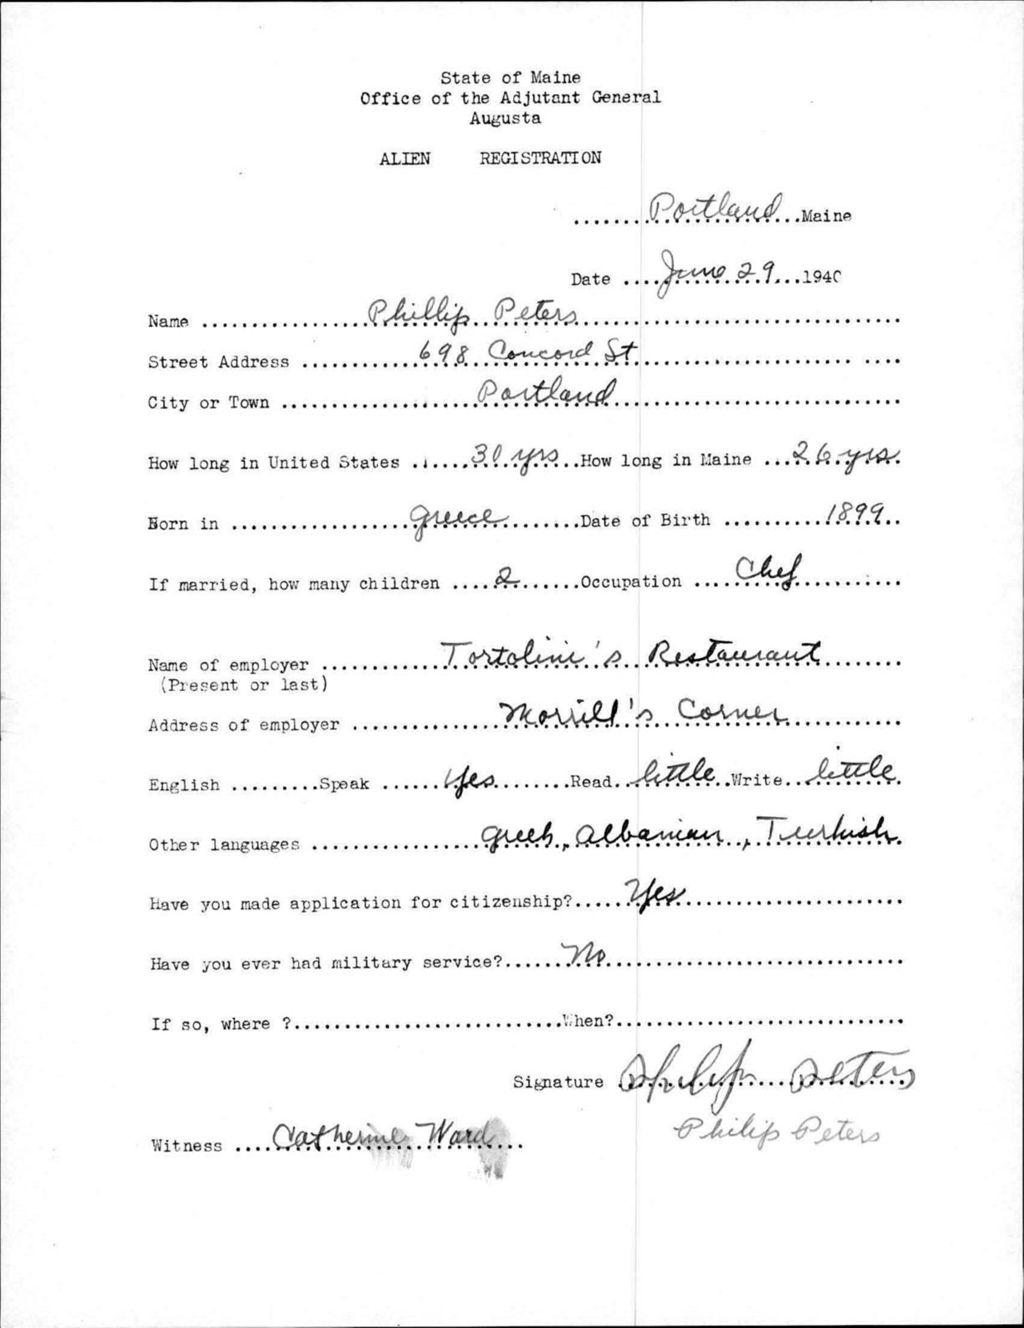 State of Maine
Office of the Adjutant General
Augusta
ALIEN REGISTRATION
.......Portland...Maine
Date ....June 29...1940
Name ................Phillip Peters................................
Street Address ............698 Concord St..........................
City or Town ...................Portland............................
How long in United States ......30 yrs...How long in Maine ...26 yrs.
Born in .................Greece........Date of Birth ..........1899..
If married, how many children ....2......Occupation ....Chef..........
Name of employer ............Tortolini's Restaurant........
(Present or last)
Address of employer ..............Morrill's Corner...........
English .........Speak ......Yes.........Read..little..Write..little.
Other languages .................Greek, Albanian, Turkish.
Have you made application for citizenship?.....Yes......................
Have you ever had military service?......No.............................
If so, where ?..........................When?............................
Signature Philip Peters
Philip Peters
Witness ....Catherine Ward...